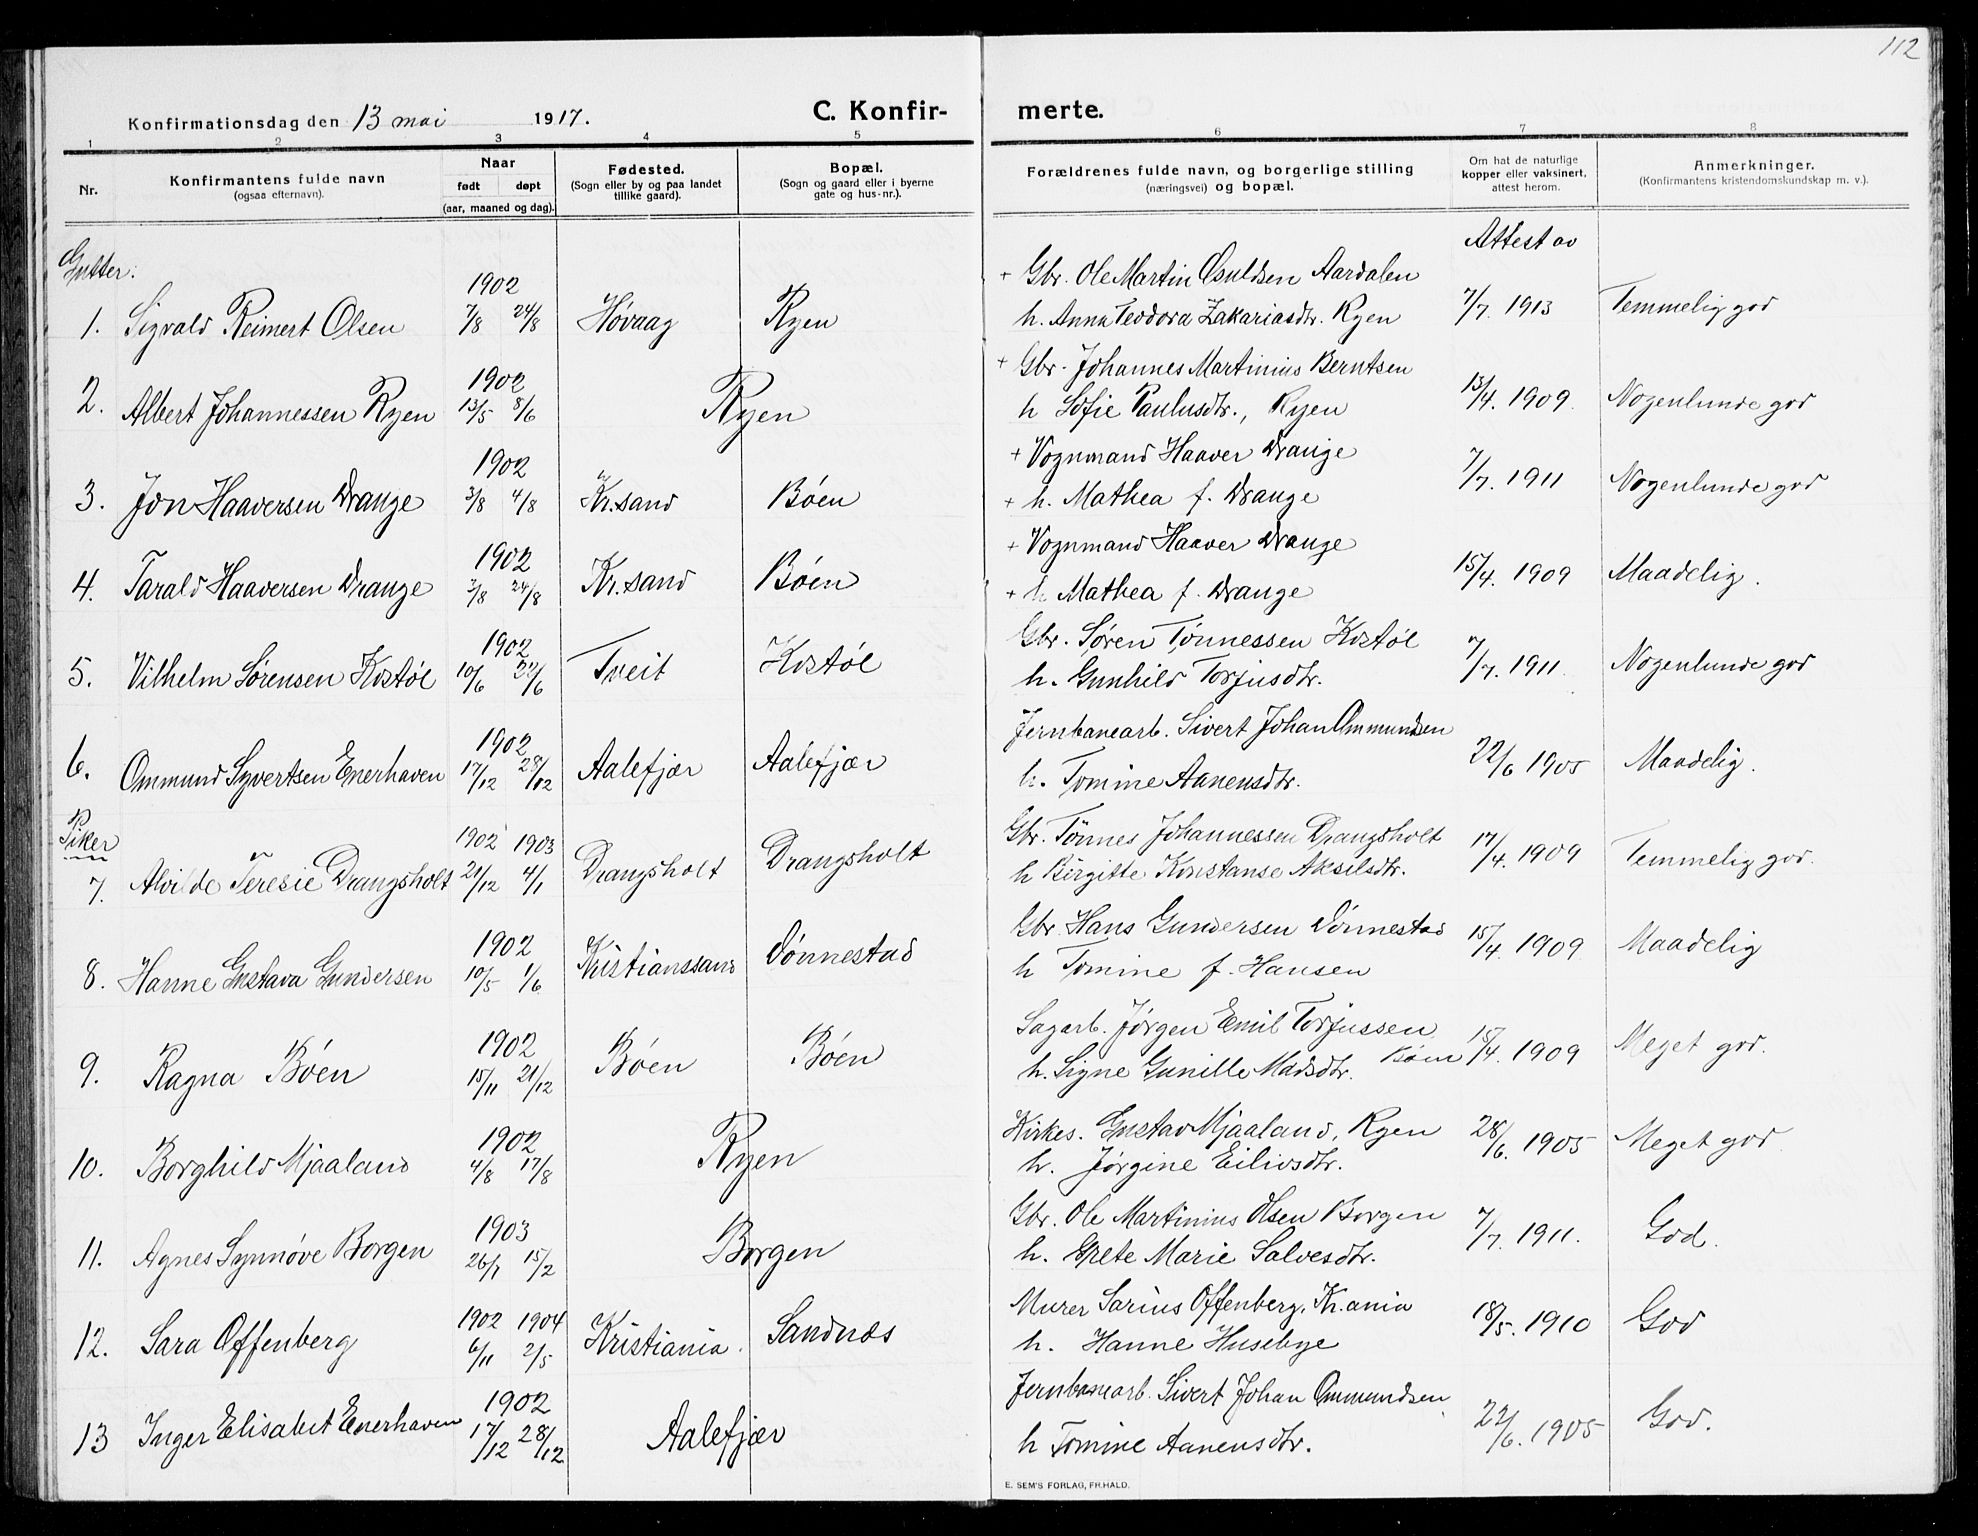 112
Konfirmationsdag den 13 mai 1917.
C. Konfirmerte.
1 2 3 4 5 6 7 8
Nr.
Konfirmantens fulde navn
(ogsaa efternavn).
Naar
født døpt
(aar, maaned og dag).
Fødested.
(Sogn eller by og paa landet
tillike gaard).
Bopæl.
(Sogn og gaard eller i byerne
gate og hus-nr.).
Forældrenes fulde navn, og borgerlige stilling
(næringsvei) og bopæl.
Om hat de naturlige
kopper eller vaksinert,
attest herom.
Anmerkninger.
(Konfirmantens kristendomskundskap m. v.).
Attest av
Gutter:
1. Sigvald Reimert Olsen 1902 7/8 24/8 Høvaag Ryen
+ Gbr. Ole Martin Osuldsen Aardalen
h. Anna Teodora Zakariasdtr. Ryen
7/7. 1913 Temmelig god
2. Albert Johannessen Ryen 1902 13/5 8/6 Ryen
+ Gbr. Johannes Martinius Berntsen
h Sofie Paulusdtr., Ryen
13/4. 1909 Nogenlunde god
3. Jon Haaversen Drange 1902 3/8 4/8 Kr.sand Bøen
+ Vognmand Haaver Drange
+ h. Mathea f. Drange
7/7. 1911 Nogenlunde god
4. Tarald Haaversen Drange 1902 3/8 24/8 Kr.sand Bøen
+ Vognmand Haaver Drange
+ h Mathea f. Drange
15/4. 1909 Maadelig.
5. Vilhelm Sørensen Kostøl 1902 10/6 22/6 Tveit Kostøl
Gbr. Søren Tønnessen Kostøl
h. Gunhild Torjusdtr.
7/7. 1911. Nogenlunde god
6. Ommund Syvertsen Enerhaven 1902 17/12 28/12 Aalefjær Aalefjær
Jernbanearb. Sivert Johan Ommundsen
h. Tomine Aanensdtr.
22/6 1905 Maadelig.
Piker
7. Alvilde Teresie Drangsholt 1902 1903 21/12 4/1 Drangsholt Drangsholt
Gbr. Tønnes Johannessen Drangsholt
h Birgitte Konstanse Akselsdtr.
17/4. 1909 Temmelig god.
8. Hanne Gustava Gundersen 1902 10/5 1/6 Kristianssand Dønnestad
Gbr. Hans Gundersen Dønnestad
h Tomine f. Hansen
15/4. 1909 Maadelig
9. Ragna Bøen 1902 15/11 21/12 Bøen Bøen
Sagarb. Jørgen Emil Torjussen
h. Signe Gunille Madsdtr. Bøen
15/4. 1909 Meget god.
10. Borghild Mjaaland 1902 4/8 17/8 Ryen
Kirkes. Gustav Mjaaland, Ryen
h. Jørgine Eilivsdtr.
28/6. 1905 Meget god
11. Agnes Synnøve Borgen 1903 26/1 15/2 Borgen
Gbr. Ole Martinius Olsen Borgen
h. Grete Marie Salvesdtr.
7/7. 1911. God.
12. Sara Offenberg 1902 1904 6/11 2/5 Kristiania. Sandnæs
Murer Sarius Offenberg, Kr.ania
h. Hanne Husebye
18/5. 1910 God
13 Inger Elisabet Enerhaven 1902 17/12 28/12 Aalefjær
Jernbanearb. Sivert Johan Ommundsen
h Tomine Aanensdtr.
22/6. 1905 God.
E. SEM'S FORLAG, FR.HALD.